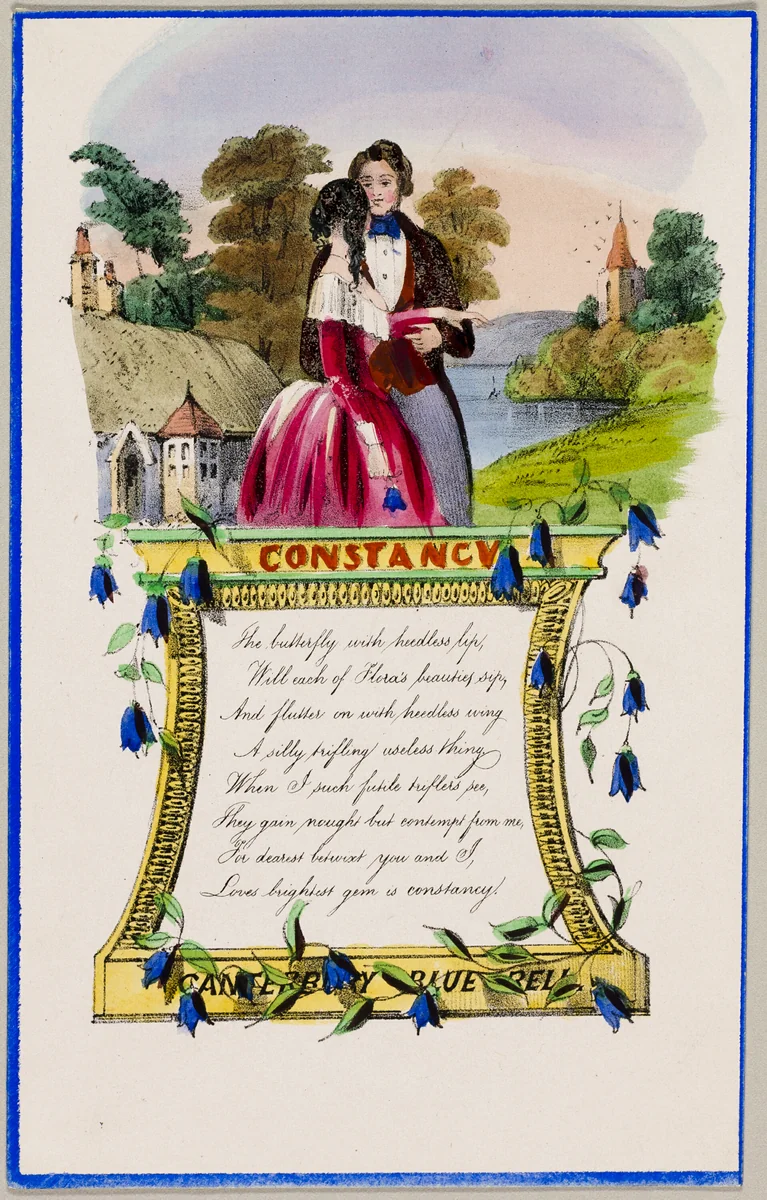 CONSTANCY
The butterfly with heedless lip,
Will each of Flora's beauties sip,
And flutter on with heedless wing
A silly trifling useless thing
When I such futile triflers see,
They gain nought but contempt from me,
For dearest betwixt you and I,
Loves brightest gem is constancy!
CANTERBURY BLUE BELL.